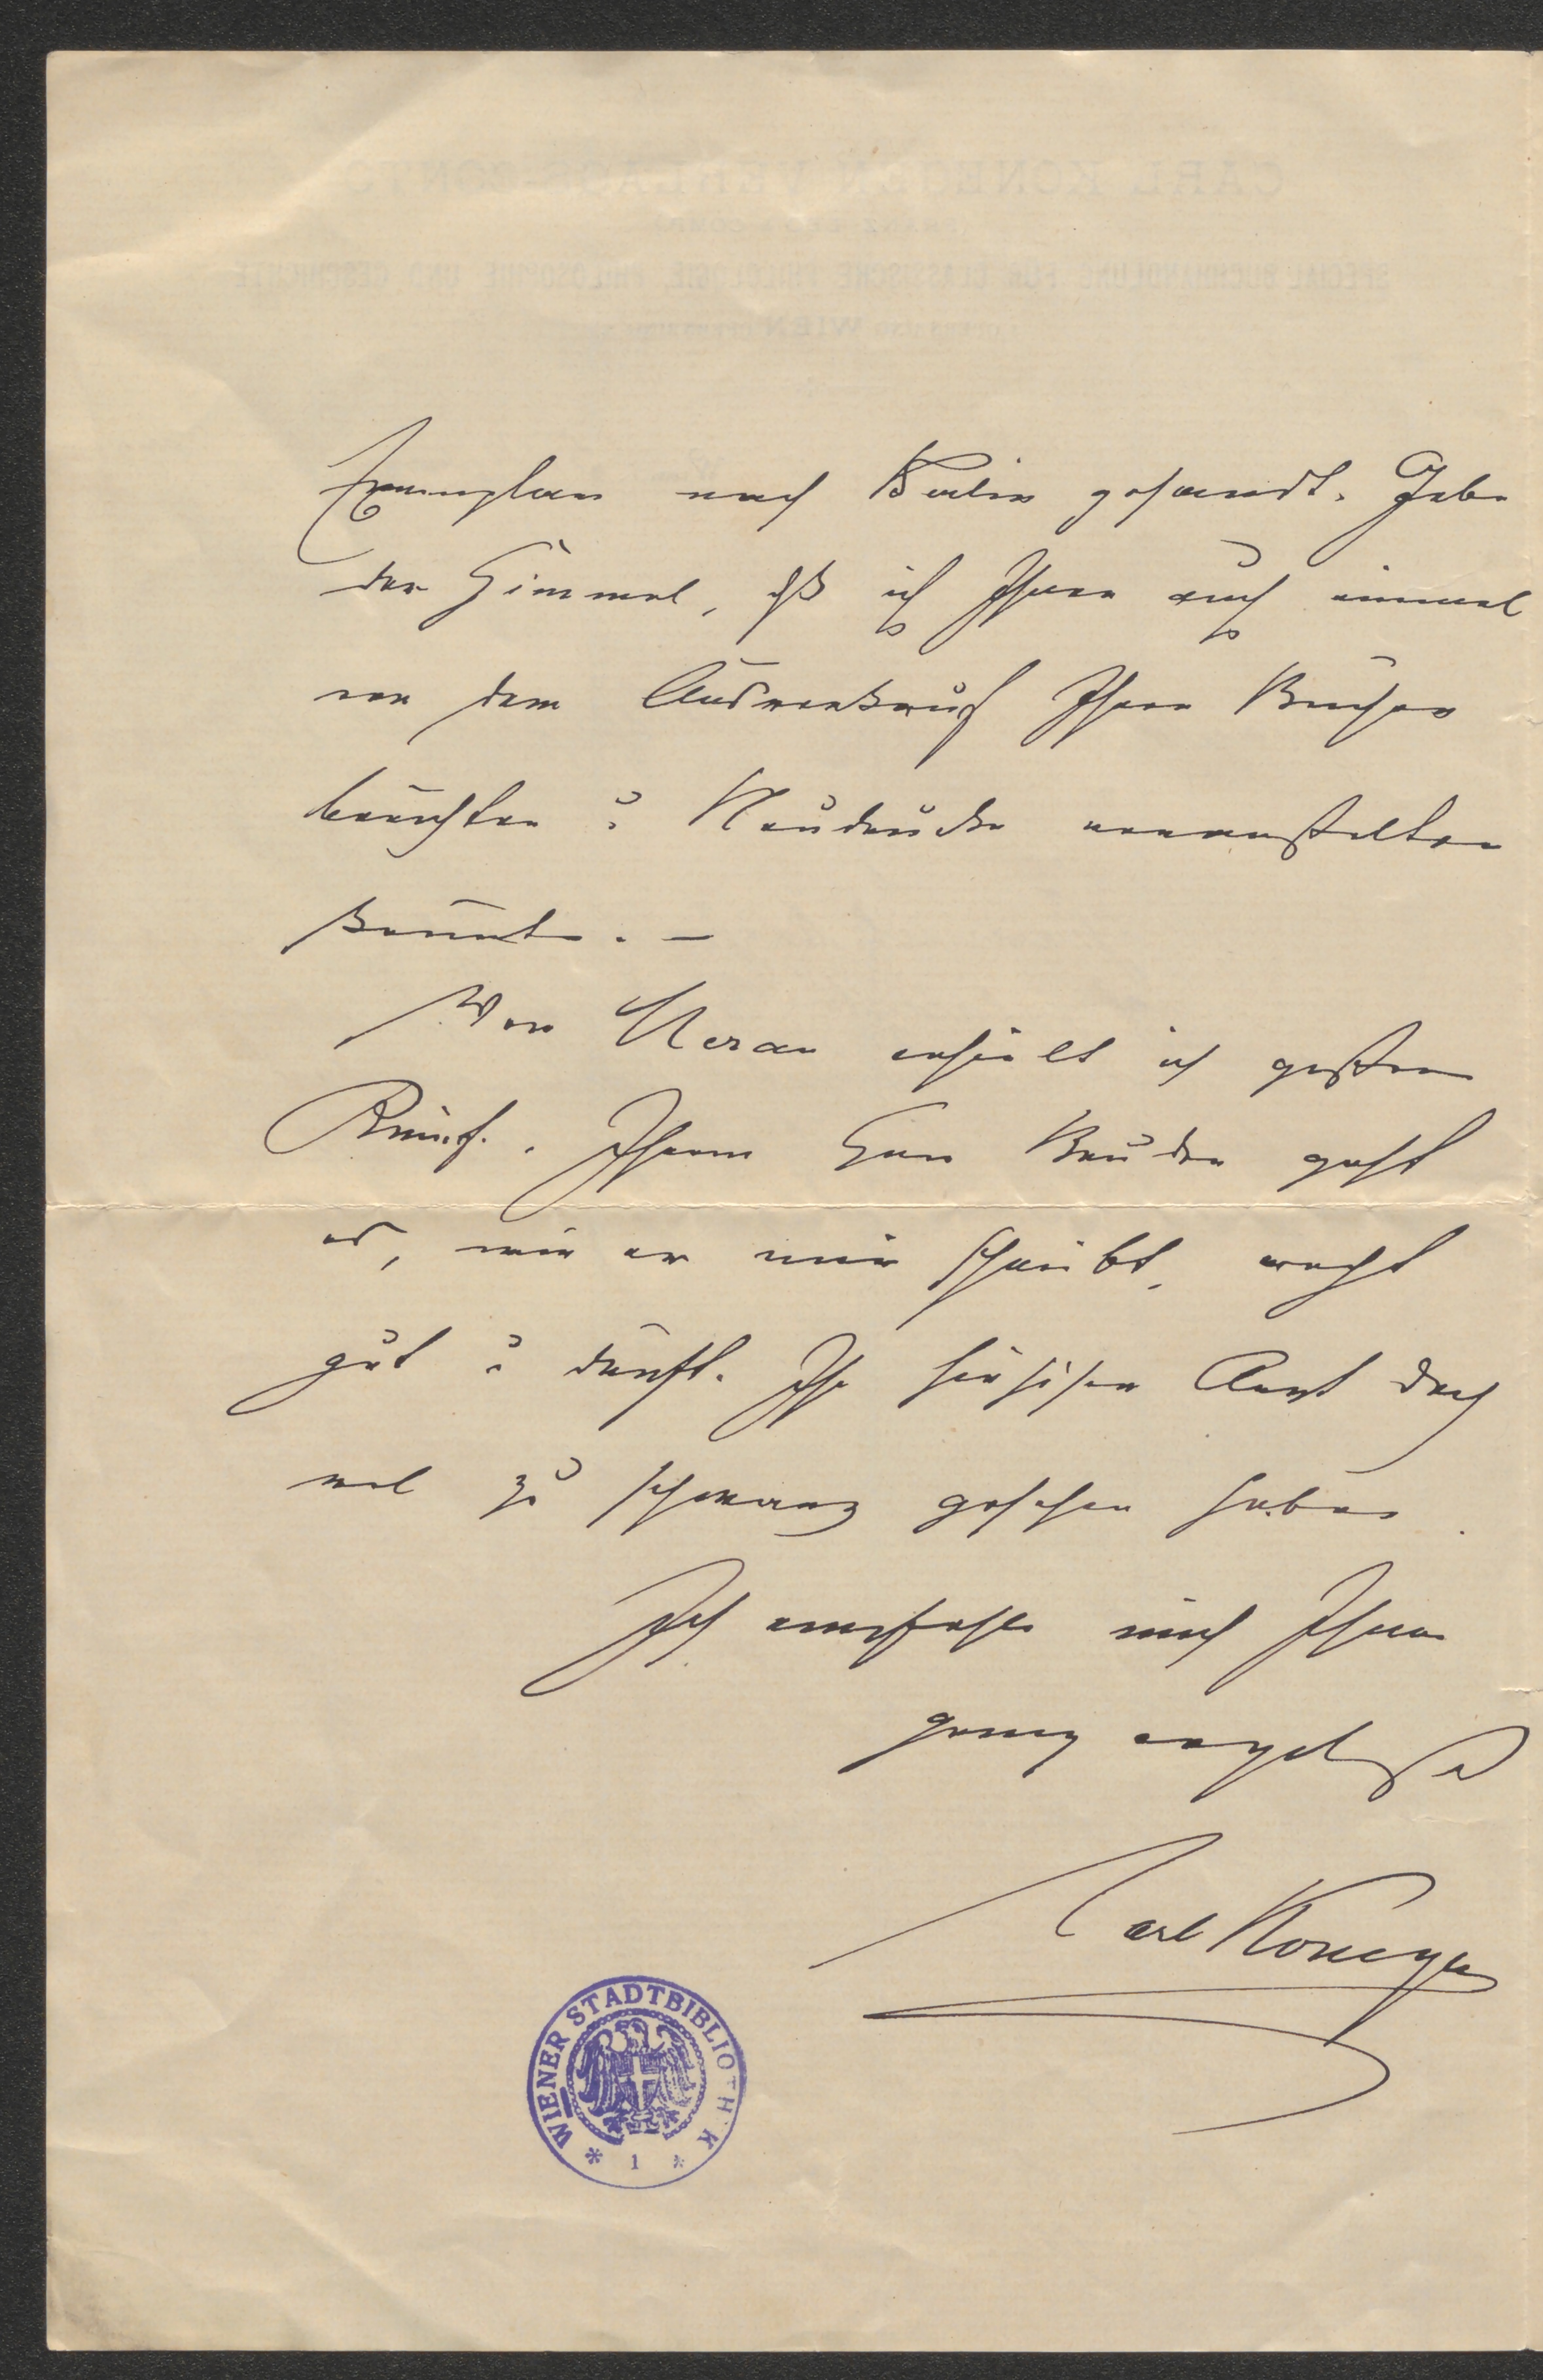 Exemplare nach Berlin gesandt. Gebe
der Himmel, dß ich Ihnen auch einmal
von dem Ausverkauf Ihrer Bücher
berichten u Neudrucke veranstalten
könnte. –
Von Meran erhielt ich gestern
Ihrem Herrn Bruder geht
es, wie er mir schreibt, recht
gut u dürfte Ihr Arzt doch
wol zu schwarz gesehen haben.
Ich empfehle mich Ihnen
ganz ergebenst
Carl Konegen
WIENER STADTBIBLIOTHEK
* 1 *